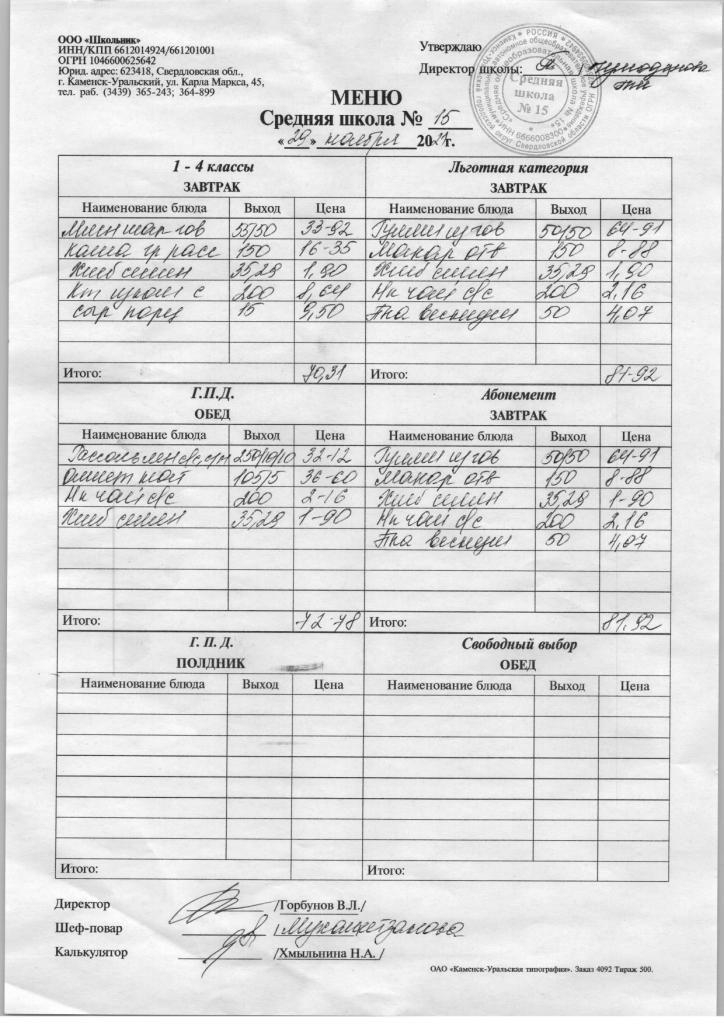 ООО «Школьник»
ИНН/КПП 6612014924/661201001
ОГРН 1046600625642
Юрид. адрес: 623418, Свердловская обл.,
г. Каменск-Уральский, ул. Карла Маркса, 45,
тел. раб. (3439) 365-243; 364-899
Утверждаю
Директор школы:
Средняя
школа
№ 15
МЕНЮ
Средняя школа № 15
« 29 » ноября 2024г.
1 - 4 классы
ЗАВТРАК
Наименование блюда Выход Цена
55/50 33-92
Каша гр расс 150 16-35
Хлеб 35,29 1,90
200 8,64
сыр порц 15 9,50
Итого: 70,31
Льготная категория
ЗАВТРАК
Наименование блюда Выход Цена
50/50 64-91
Макар отв 150 8-88
Хлеб 35,29 1,90
Нк чай с/с 200 2,16
50 4,07
Итого: 81-92
Г.П.Д.
ОБЕД
Наименование блюда Выход Цена
250/10/10 32-12
Омлет нат 105/5 36-60
Нк чай с/с 200 2-16
Хлеб 35,29 1-90
Итого: 72-78
Абонемент
ЗАВТРАК
Наименование блюда Выход Цена
50/50 64-91
Макар отв 150 8-88
Хлеб 35,29 1-90
Нк чай с/с 200 2,16
50 4,07
Итого: 81,92
Г. П. Д.
ПОЛДНИК
Наименование блюда Выход Цена
Итого:
Свободный выбор
ОБЕД
Наименование блюда Выход Цена
Итого:
Директор /Горбунов В.Л./
Шеф-повар
Калькулятор /Хмыльнина Н.А. /
ОАО «Каменск-Уральская типография». Заказ 4092 Тираж 500.